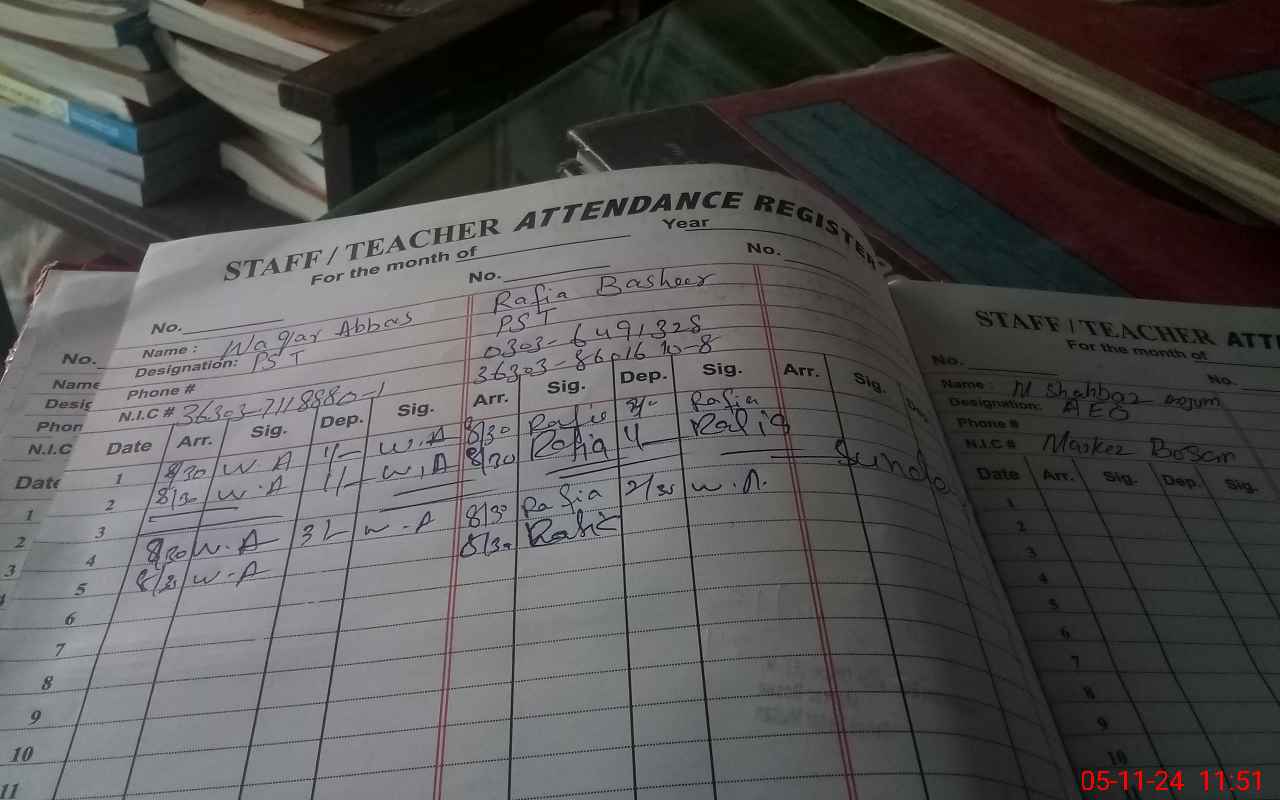 STAFF / TEACHER ATTENDANCE REGISTER
For the month of Year
No. No. No.
Name : Waqar Abbas Rafia Basheer
Designation: PST PST
Phone # 0303-6491328
N.I.C # 36303-7118880-1
Date Arr. Sig. Dep. Sig. Arr. Sig. Dep. Sig. Arr. Sig. De
1 8/30 W.A W.A 8/30 Rafia Rafia
2 8/30 W.A W.A 8/30 Rafia Rafia
3 Sunda
4 8/30 W.A W.A 8/30 Rafia 2/30 W.A.
5 8/30 W.A 8/30 Rafia
6
7
8
9
10
11
No.
Name
Desig
Phon
N.I.C
Date
1
2
3
4
STAFF / TEACHER ATTE
For the month of
No. No.
Name : M Shahbaz
Designation: AEO
Phone #
N.I.C # Markez Bosan
Date Arr. Sig. Dep. Sig.
1
2
3
4
5
6
7
8
9
10
05-11-24 11:51